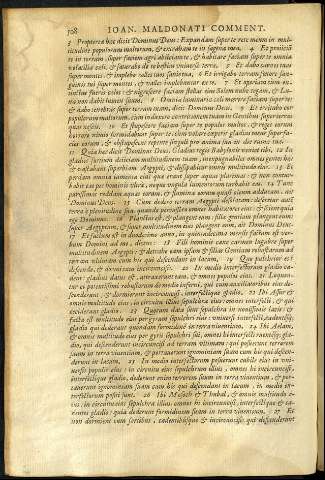 708 IOAN. MALDONATI COMMENT.
3 Propterea hæc dicit Dominus Deus: Expandam super te rete meum in mul-
titudine populorum multorum, & extraham te in sagena mea. 4 Et projiciã
te in terram, super faciem agri abjiciam te, & habitare faciam super te omnia
volatilia cæli, & saturabo de te bestias universæ terræ. 5 Et dabo carnes tuas
super montes, & implebo colles tuos sanie tua. 6 Et irrigabo terram
super montes, & valles implebuntur ex te. 7 Et operiam cum ex-
tinctus fueris cælos, & nigrescere faciam stellas ejus: Solem nube tegam, & Lu-
na non dabit lumen suum. 8 Omnia luminaria cæli mœrere faciam super te:
& dabo tenebras super terram tuam, dicit Dominus Deus. 9 Et irritabo cor
populorum multorum, cum induxero contritionem tuam in Gentibus super terras
quas nescis. 10 Et stupescere faciam super te populos multos: & reges eorum
horrore nimio formidabunt super te, cum volare cœperit gladius meus super fa-
cies eorum: & obstupescent repente singuli pro anima sua in die ruinæ
11 Quia hæc dicit Dominus Deus: Gladius regis Babylonis veniet tibi, 12 In
gladiis fortium dejiciam multitudinem tuam: inexpugnabiles omnes gentes hæ:
& vastabunt superbiam Ægypti, & dissipabitur multitudo ejus. 13 Et
perdam omnia jumenta ejus quæ erant super aquas plurimas: & non contur-
babit eas pes hominis ultra, neque ungula jumentorum turbabit eas. 14 Tunc
purissimas reddam aquas eorum, & flumina eorum quasi oleum adducam: ait
Dominus Deus. 15 Cum dedero terram Ægypti desolatam: deseretur autẽ
terra à plenitudine sua, quando percussero omnes habitatores ejus: & scient quia
ego Dominus. 16 Planctus est, & plangent eum: filiæ gentium plangent eum:
super Ægyptum, & super multitudinem ejus plangent eum, ait Dominus Deus.
17 Et factum est in duodecimo anno, in quintadecima mensis factum est ver-
bum Domini ad me, dicens: 18 Fili hominis cane carmen lugubre super
multitudinem Ægypti: & detrahe eam ipsam & filias Gentium robustarum ad
terram ultimam cum his qui descendunt in lacum. 19 Quo pulchrior es?
descende, & dormi cum incircumcisis. 20 In medio interfectorum gladio ca-
dent: gladius datus est, attraxerunt eam, & omnes populos ejus. 21 Loquen-
tur ei potentissimi robustorum de medio inferni, qui cum auxiliatoribus ejus de-
scenderunt, & dormierunt incircumcisi, interfectique gladio. 22 Ibi Assur &
omnis multitudo ejus, in circuitu illius sepulchra ejus: omnes interfecti, & qui
ceciderunt gladio. 23 Quorum data sunt sepulchra in novissimis laci: &
facta est multitudo ejus per gyrum sepulchri ejus: universi interfecti, cadentesq;
gladio, qui dederant quondam formidinem in terra viventium. 24 Ibi Ælam,
& omnis multitudo ejus per gyrum sepulchri sui, omnes hi interfecti ruentesq; gla-
dio, qui descenderunt incircumcisi ad terram ultimam: qui posuerunt terrorem
suum in terra viventium, & portaverunt ignominiam suam cum his qui descen-
derunt in lacum. 25 In medio interfectorum posuerunt cubile ejus in uni-
versis populis ejus: in circuitu ejus sepulchrum illius, omnes hi incircumcisi,
interfectique gladio, dederunt enim terrorem suum in terra viventium, & por-
taverunt ignominiam suam cum his qui descendunt in lacum, in medio in-
terfectorum positi sunt. 26 Ibi Mosoch & Thubal, & omnis multitudo e-
jus, in circuitu ejus sepulchra illius: omnes hi incircumcisi, interfectique & ca-
dentes gladio: quia dederunt formidinem suam in terra viventium. 27 Et
non dormient cum fortibus, cadentibusque & incircumcisis, qui descenderunt